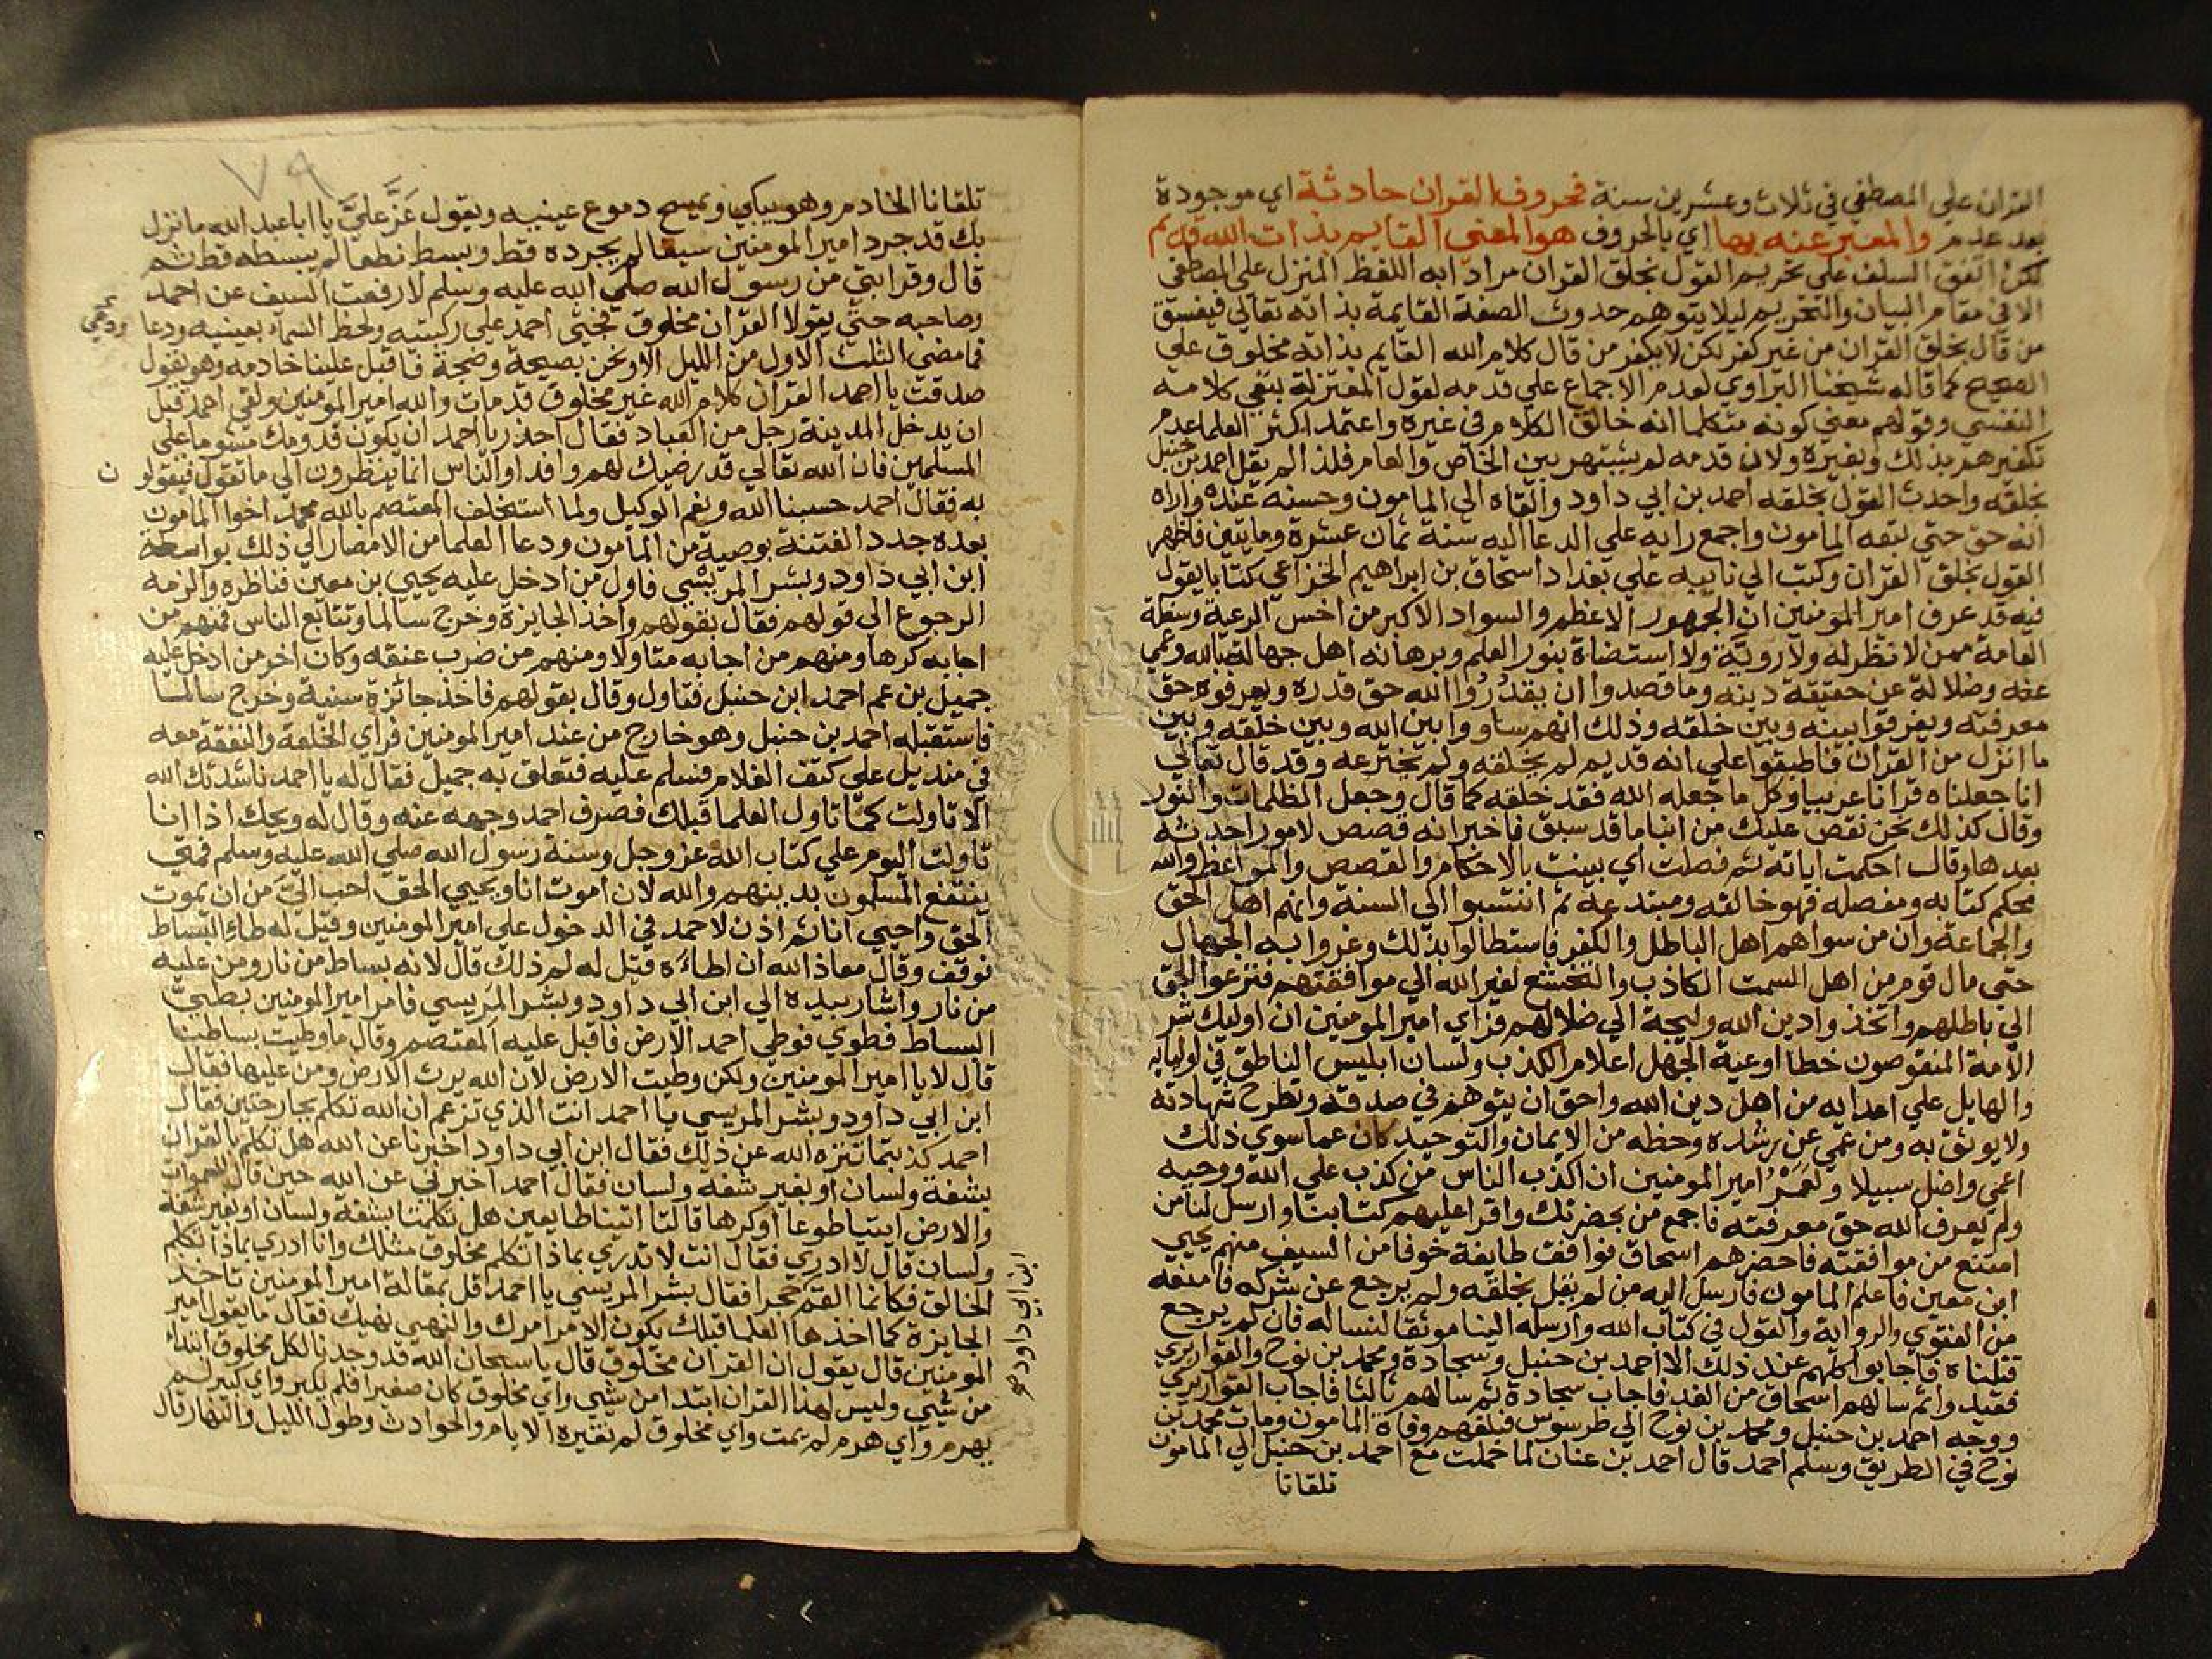 القران علي المصطفي في ثلاث وعشرين سنة فحروف القران حادثة اي موجودة
بعد عدم والمعبر عنه بها اي بالحروف هو المعني القايم بذات الله قديم
لكن اتفق السلف علي تحريم القول بخلق القران مرادا به اللفظ المنزل علي المصطفي
الا في مقام البيان والتحريم ليلا يتوهم حدوث الصفة القايمة بذاته تعالي فيفسق
من قال بخلق القران من غير كفر لكن لا يكفر من قال كلام الله القايم بذاته مخلوق علي
الصحيح كما قاله شيخنا البراوي لعدم الاجماع علي قدمه لقول المعتزلة بنفي كلامه
النفسي وقولهم معني كونه متكلما انه خالق الكلام في غيره واعتمد اكثر العلما عدم
تكفيرهم بذلك وبغيره ولان قدمه لم يشتهر بين الخاص والعام فلذا لم يقل احمد بن حنبل
بخلقه واحدث القول بخلقه احمد بن ابي داود والقاه الي المامون وحسنه عنده واراه
انه حق حتي تبعه المامون واجمع رايه علي الدعا اليه سنة ثمان عشرة ومايتين فاظهر
القول بخلق القران وكتب الي نايبه علي بغداد اسحاق بن ابراهيم الخزاعي كتابا يقول
فيه قد عرف امير المومنين ان الجمهور الاعظم والسواد الاكبر من اخس الرعية وسفلة
العامة ممن لا نظر له ولا روية ولا استضاة بنور العلم وبرهانه اهل جهالة بالله وعمي
عنه وضلالة عن حقيقة دينه وما قصدوا ان يقدروا الله حق قدره ويعرفوه حق
معرفته ويفرقوا بينه وبين خلقه وذلك انهم ساووا بين الله وبين خلقه وبين
ما انزل من القران فاطبقوا علي انه قديم لم يخلقه ولم يخترعه وقد قال تعالي
انا جعلناه قرانا عربيا وكل ما جعله الله فقد خلقه كما قال وجعل الظلمات والنور
وقال كذلك نحن نقص عليك من انبا ما قد سبق فاخبر انه قصص لامور احدثه
بعدها وقال احكمت اياته ثم فصلت اي بينت بالاحكام والقصص والمواعظ والله
محكم كتابه ومفصله فهو خالقه ومبتدعه ثم انتسبوا الي السنة وانهم اهل الحق
والجماعة وان من سواهم اهل الباطل والكفر فاستطالوا بذلك وغروا به الجهال
حتي مال قوم من اهل السمت الكاذب والتخشع لغير الله الي موافقتهم فنزعوا الحق
الي باطلهم واتخذوا دين الله وليجة الي ضلالهم فراي امير المومنين ان اوليك شر
الامة المنقوصون خطا اوعية الجهل اعلام الكذب ولسان ابليس الناطق في اوليايه
والهايل علي اعدايه من اهل دين الله واحق ان يتوهم في صدقه وتطرح شهادته
ولا يوثق به ومن عمي عن رشده وحظه من الايمان والتوحيد كان عما سوي ذلك
اعمي واضل سبيلا ولعمر امير المومنين ان اكذب الناس من كذب علي الله ووحيه
ولم يعرف الله حق معرفته فاجمع من بحضرتك واقرا عليهم كتابنا وارسل لنا من
امتنع من موافقته فاحضرهم اسحاق فوافقت طايفة خوفا من السيف منهم يحيي
ابن معين فاعلم المامون فارسل اليه من لم يقل بخلقه ولم يرجع عن شركه فامنعه
من الفتوي والرواية والقول في كتاب الله وارسله الينا موثقا لنساله فان لم يرجع
قتلناه فاجابوا كلهم عند ذلك الا احمد بن حنبل وسجادة ومحمد بن نوح والقواريري
فقيدوا ثم سالهم اسحاق من الغد فاجاب سجادة ثم سالهم ثالثا فاجاب القواريري
ووجه احمد بن حنبل ومحمد بن نوح الي طرسوس فبلغهم وفاة المامون ومات محمد بن
نوح في الطريق وسلم احمد قال احمد بن عنان لما حملت مع احمد بن حنبل الي المامون
تلقانا
٧٩
تلقانا الخادم وهو يبكي ويمسح دموع عينيه ويقول عَزَّ عليَّ يا ابا عبد الله ما نزل
بك قد جرد امير المومنين سيفا لم يجرده قط وبسط نطعا لم يبسطه قط ثم
قال وقرابتي من رسول الله صلي الله عليه وسلم لا رفعت السيف عن احمد
وصاحبه حتي يقولا القران مخلوق فجثي احمد علي ركبتيه ولحظ السماء بعينيه ودعا
فما مضي الثلث الاول من الليل الا ونحن بصيحة وضجة فاقبل علينا خادمه وهو يقول
صدقت يا احمد القران كلام الله غير مخلوق قد مات والله امير المومنين ولقي احمد قبل
ان يدخل المدينة رجل من العباد فقال احذر يا احمد ان يكون قدومك مشوما علي
المسلمين فان الله تعالي قد رضيك لهم وافدا والناس انما ينظرون الي ما تقول فيقولو ن
به فقال احمد حسبنا الله ونعم الوكيل ولما استخلف المعتصم بالله محمد اخوا المامون
بعده جدد الفتنة بوصية من المامون ودعا العلما من الامصار الي ذلك بواسطة
ابن ابي داود وبشر المريشي فاول من ادخل عليه يحيي بن معين فناظره والزمه
الرجوع الي قولهم فقال بقولهم واخذ الجايزة وخرج سالما وتتابع الناس فمنهم من
اجابه كرها ومنهم من اجابه متاولا ومنهم من ضرب عنقه وكان اخر من ادخل عليه
جميل بن عم احمد ابن حنبل فتاول وقال بقولهم فاخذ جائزة سنية وخرج سالما
فاستقبله احمد بن حنبل وهو خارج من عند امير المومنين فراي الخلعة والنفقة معه
في منديل علي كتف الغلام فسلم عليه فتعلق به جميل فقال له يا احمد ناشدتك الله
الا تاولت كما تاول العلما قبلك فصرف احمد وجهه عنه وقال له ويحك اذا انا
تاولت اليوم علي كتاب الله عز وجل وسنة رسول الله صلي الله عليه وسلم فمتي
ينتفع المسلمون بدينهم والله لان اموت انا ويحيي الحق احب الي من ان يموت
الحق واحيي انا ثم اذن لاحمد في الدخول علي امير المومنين وقيل له طاء البساط
فوقف وقال معاذ الله ان اطاءه فقيل له لم ذلك قال لانه بساط من نار ومن عليه
من نار واشار بيده الي ابن ابي داود وبشر المريسي فامر امير المومنين بطي
البساط فطوي فوطي احمد الارض فاقبل عليه المعتصم وقال ما وطيت بساطنا
قال لا يا امير المومنين ولكن وطيت الارض لان الله يرث الارض ومن عليها فقال
ابن ابي داود وبشر المريسي يا احمد انت الذي تزعم ان الله تكلم بجارحتين فقال
احمد كذبتما تنزه الله عن ذلك فقال ابن ابي داود اخبرنا عن الله هل تكلم بالقران
بشفة ولسان او بغير شفه ولسان فقال احمد اخبرني عن الله حين قال للسموات
والارض ايتيا طوعا او كرها قالتا اتينا طايعين هل تكلمتا بشفه ولسان او بغير شفه
ولسان قال لا ادري فقال انت لا تدري بماذا تكلم مخلوق مثلك وانا ادري بماذا تكلم
الخالق فكانما القم حجرا فقال بشر المريسي يا احمد قل بمقالة امير المومنين تاخذ
الجايزة كما اخذها العلما قبلك يكون الامر امرك والنهي نهيك فقال ما يقول امير
المومنين قال يقول ان القران مخلوق قال يا سبحان الله قد وجدنا لكل مخلوق ابتداء
من شيي وليس لهذا القران ابتدا من شيي واي مخلوق كان صغيرا فلم يكبر واي كبير لم
يهرم واي هرم لم يمت واي مخلوق لم تغيره الايام والحوادث وطول الليل والنهار قال
ابن ابي داود